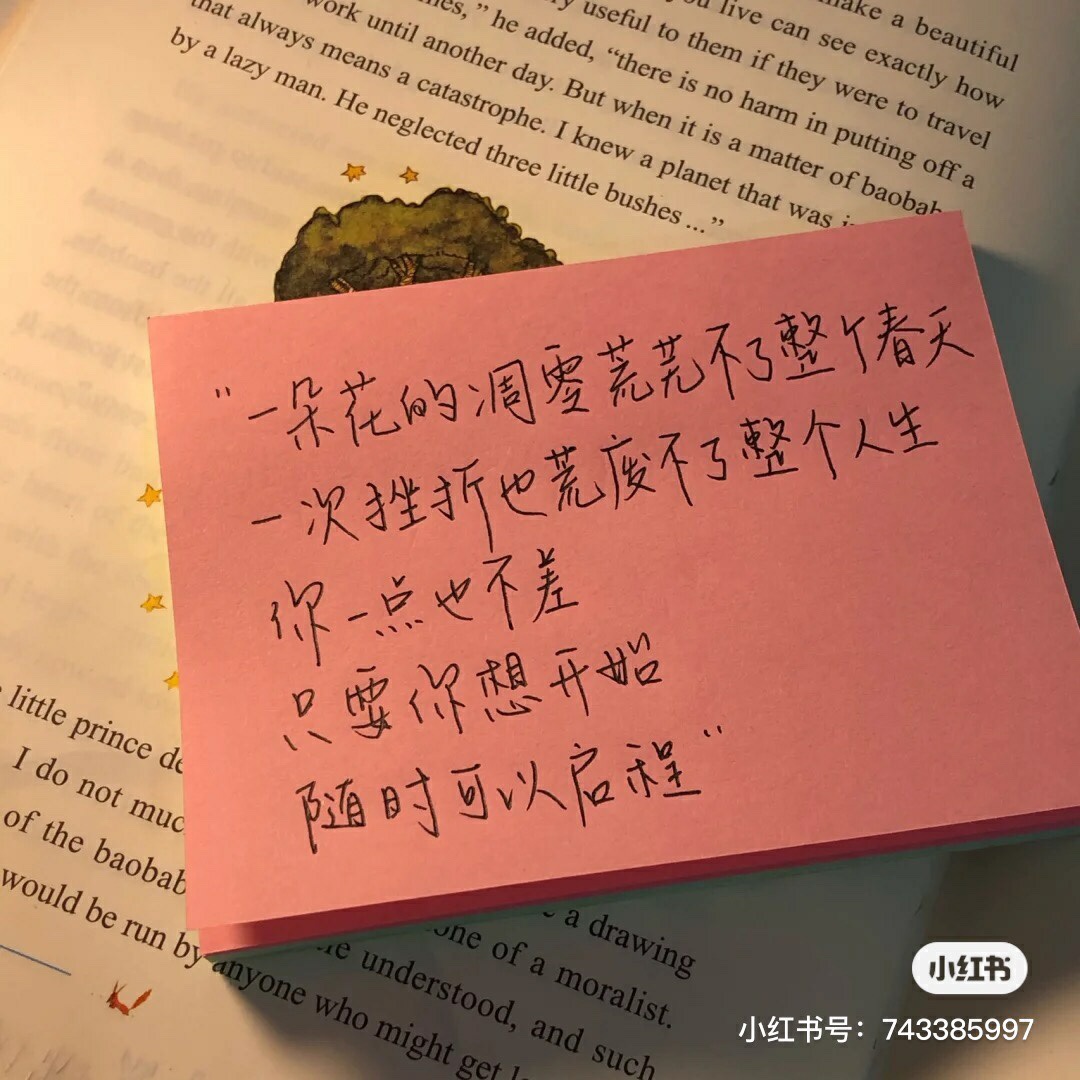 make a beautiful
you live can see exactly how
useful to them if they were to travel
,” he added, “there is no harm in putting off a
work until another day. But when it is a matter of baobab
that always means a catastrophe. I knew a planet that was
by a lazy man. He neglected three little bushes ...”
"一朵花的凋零荒芜不了整个春天
一次挫折也荒废不了整个人生
你一点也不差
只要你想开始
随时可以启程"
little prince de
I do not muc
of the baobab
would be run by anyone who might get
a drawing
one of a moralist.
understood, and such
小红书
小红书号：743385997